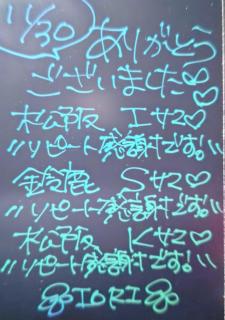 11/30
ありがとう
ございました♡
松阪 Iサマ♡
"リピート感謝です!"
鈴鹿 Sサマ♡
"リピート感謝です!"
松阪 Kサマ♡
"リピート感謝です!"
IORI